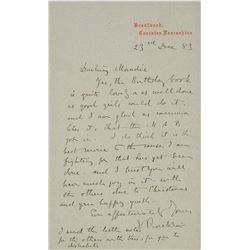 Brantwood,
Coniston, Lancashire
23rd Dec 83
Darling Maudie
Yes, the Birthday book
is quite lovely & as well done
as good girls could do it.
and I am glad as mamma
likes it, that the
got in. I do think it is the
best service to the cause I am
fighting for that has yet been
done. and I trust you will
have much joy in it with
the others due to Christmas
and your happy youth.
Ever affectionately Yours
J Ruskin
I send the better note
for the others with this for you